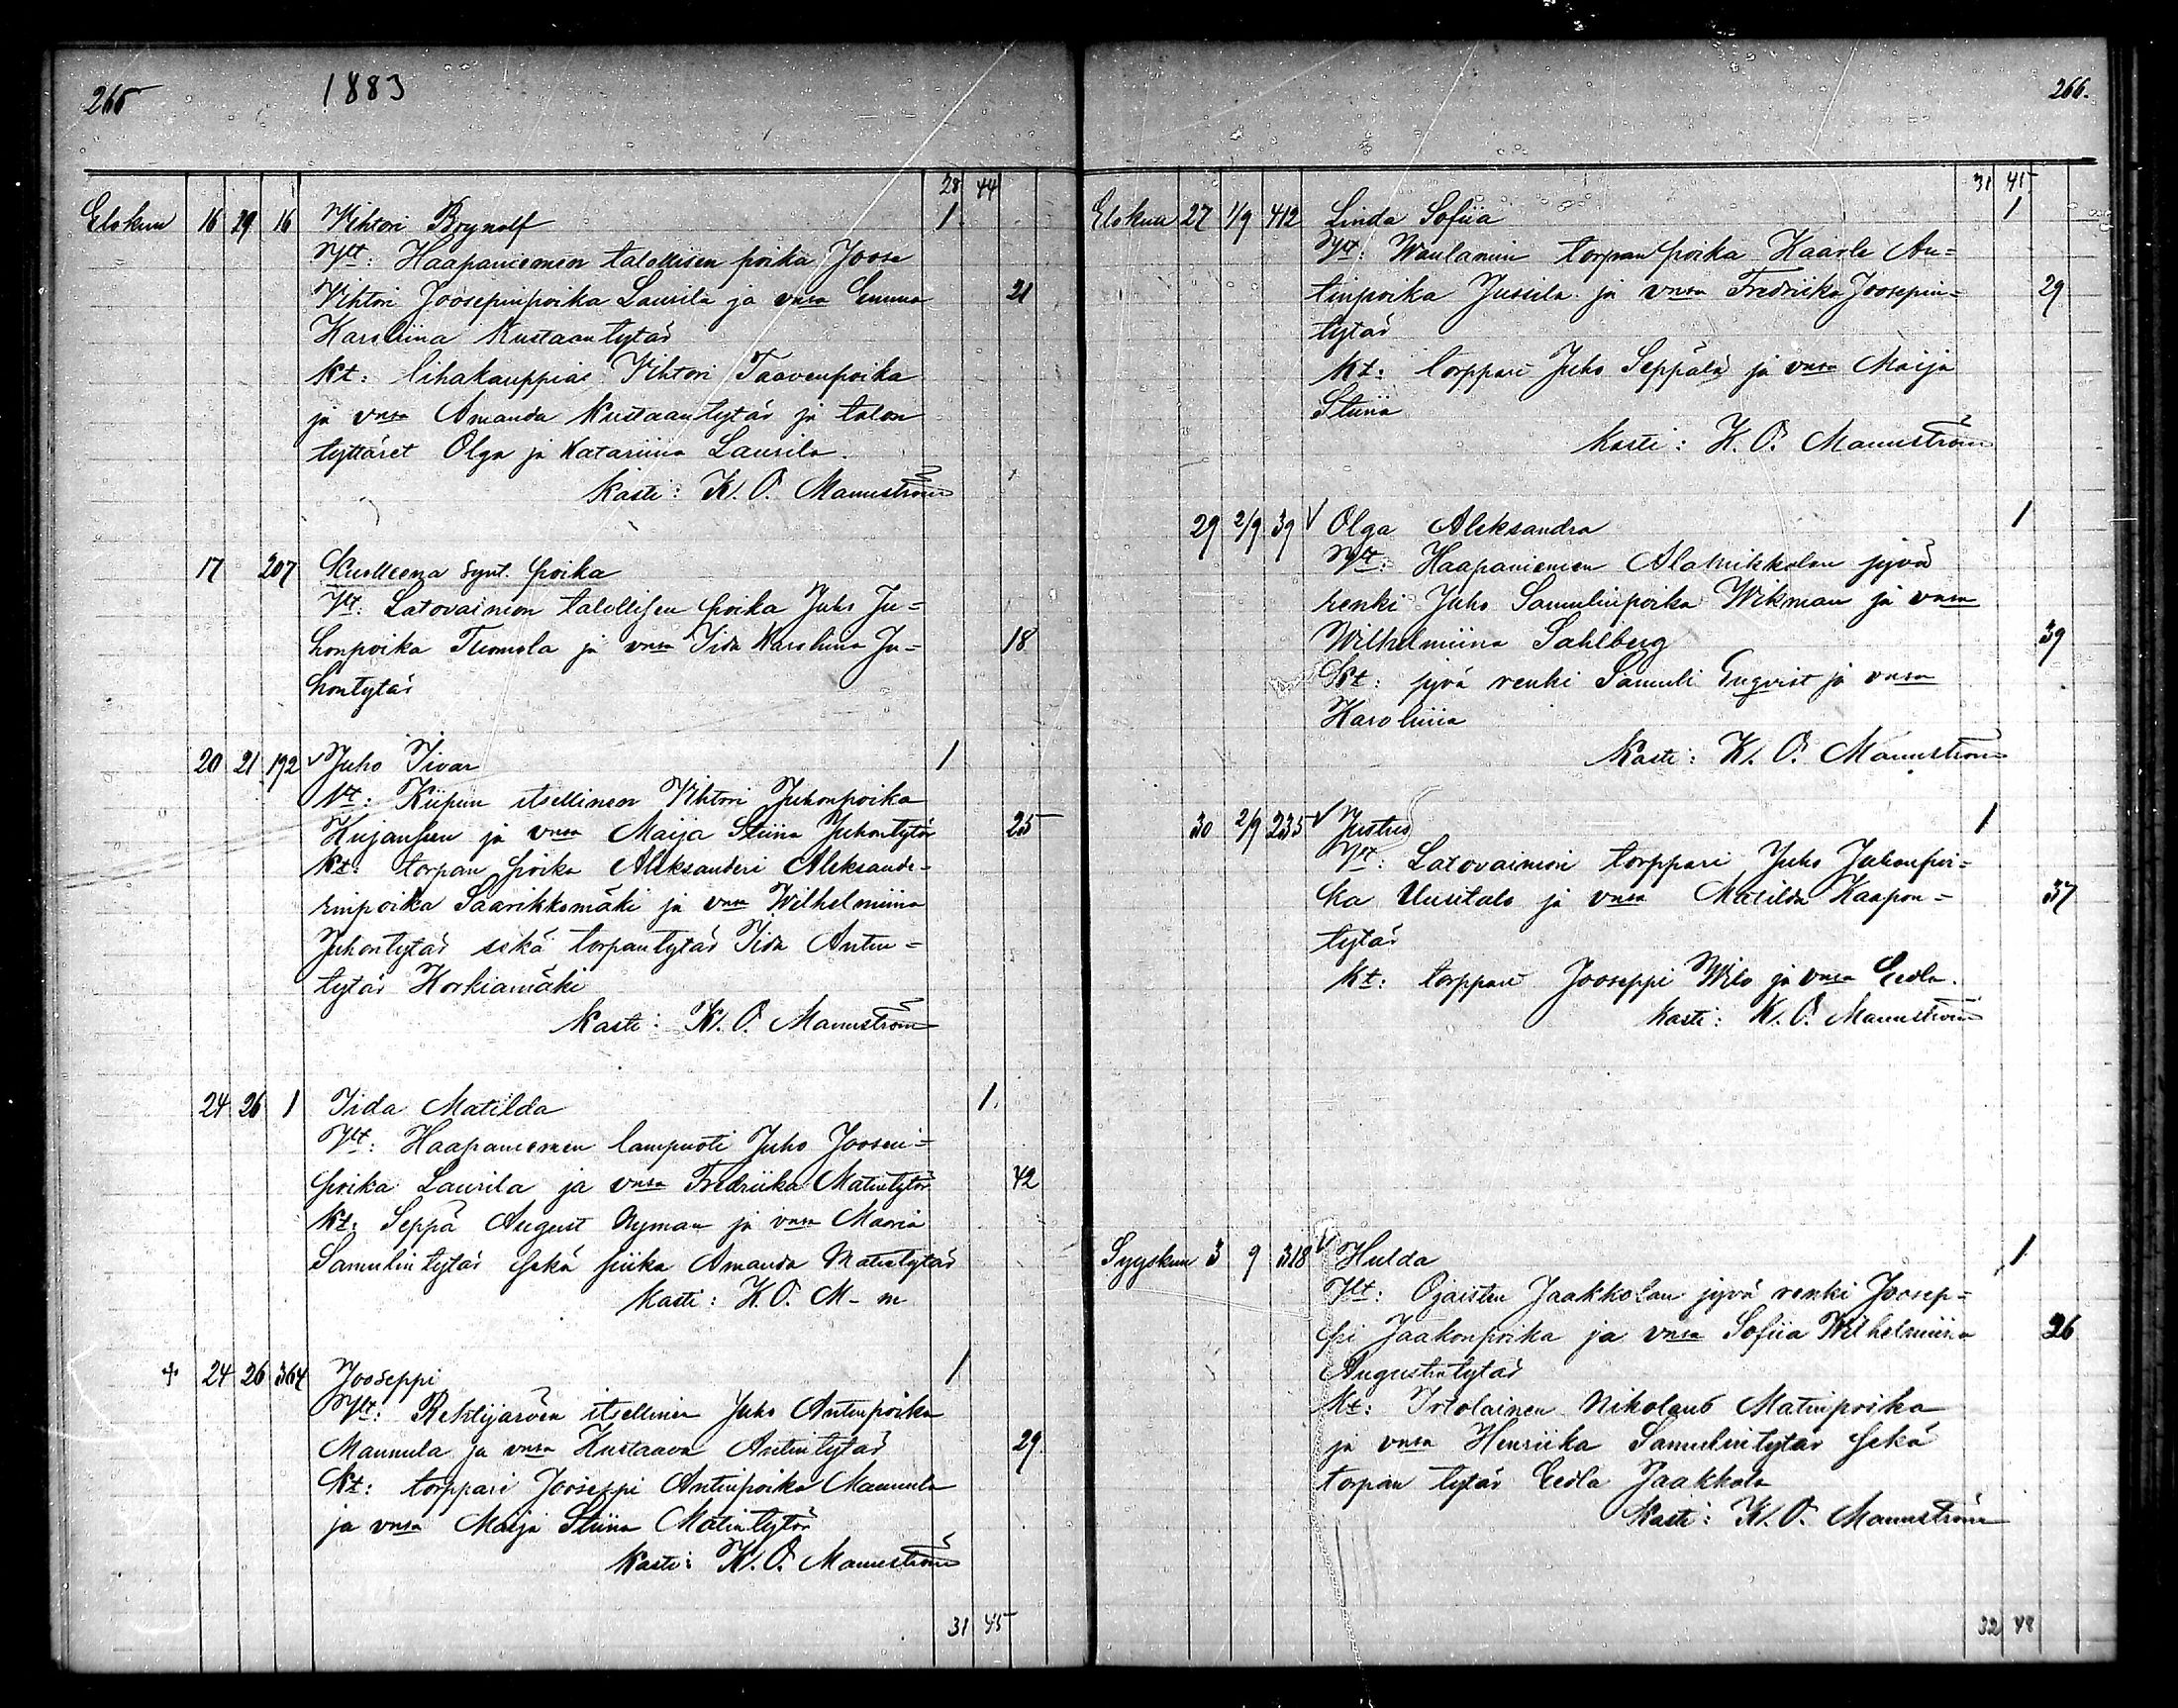 265 1883
28 44
Elokuu 16 29 16 Vihtori Brynolf 1
Vt: Haapaniemen talollisen poika Joose
Vihtori Joosepinpoika Laurila ja vmsa Emma 21
Karoliina Kustaantytär
Kt: lihakauppias Vihtori Taavenpoika
ja vmsa Amanda Kustaantytär ja talon
tyttäret Olga ja Katariina Laurila.
Kasti: K. O. Mannström
17 207 Kuolleena synt. poika
Vt: Latovainion talollisen poika Juho Ju=
honpoika Tuomola ja vmsa Iida Karoliina Ju= 18
hontytär
20 21 192 Juho Iivar 1
Vt: Kiipun itsellinen Vihtori Juhonpoika
Kujanpen ja vmsa Maija Stiina Juhontytär 25
Kt: torpan poika Aleksanderi Aleksande-
rinpoika Saarikkomäki ja vmsa Wilhelmiina
Juhontytär sekä torpantytär Iida Antin=
tytär Korkiamäki
Kasti: K. O. Mannström
24 26 1 Iida Matilda 1.
Vt: Haapaniemen lampuoti Juho Joosen=
poika Laurila ja vmsa Fredriika Matintytär 42
Kt: Seppä August Nyman ja vmsa Maria
Samulintytär sekä piika Amanda Matintytär
Kasti: K. O. M-m
+ 24 26 364 Jooseppi 1
Vt: Rehtijärven itsellinen Juho Antinpoika
Mannula ja vmsa Kustaava Antintytär 29
Kt: torppari Jooseppi Antinpoika Mannula
ja vmsa Maija Stiina Matintytär
Kasti: K. O. Mannström
31 45
266.
31 45
Elokuu 27 1/9 412 Linda Sofiia 1
Vt: Waulamin torpan poika Kaarle An=
tinpoika Jussila ja vmsa Fredriika Joosepin= 29
tytär
Kt: torppari Juho Seppälä ja vmsa Maija
Stiina
Kasti: K. O. Mannström
29 2/9 39 √ Olga Aleksandra 1
Vt: Haapaniemen Alahikkolan jyvä
renki Juho Samulinpoika Wikman ja vmsa
Wilhelmiina Sahlberg 39
Kt: jyvä renki Samuli Engvist ja vmsa
Karoliina
Kasti: K. O. Mannström
30 2/9 235 √ Justus 1
Vt: Latovainion torppari Juho Juhonpoi=
ka Uusitalo ja vmsa Matilda Kaapon= 37
tytär
Kt: torppari Jooseppi Wilo ja vmsa Eedla.
Kasti: K. O. Mannström
Syyskuu 3 9 318 √ Hulda 1
Vt: Ojaisten Jaakkolan jyvä renki Joosep=
pi Jaakonpoika ja vmsa Sofiia Wilhelmiina 26
Augustintytär
Kt: Irtolainen Nikolaus Matinpoika
ja vmsa Henriika Samulintytär sekä
torpan tytär Eedla Jaakkola
Kasti: K. O. Mannström
32 48